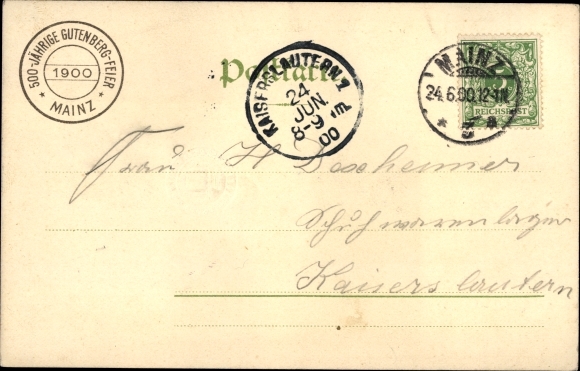 500-JÄHRIGE GUTENBERG-FEIER
1900
* MAINZ *
Postkarte
KAISERSLAUTERN
24
JUN.
8-9
00
MAINZ
24.6.00.12-1N.
REICHSPOST
Frau H Doscheimer
Schuhwarenlager
Kaiserslautern